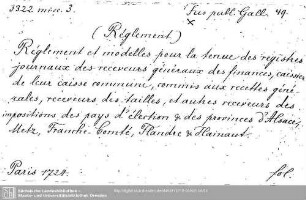 3322 misc. 3. Jus publ. Gall. 49.
×
(Règlement)
Règlement et modelles pour la tenue des registres
journaux des receveurs généraux des finances, caisses
de leur caisse commune, commis aux recettes géné-
rales, receveurs des tailles, et autres receveurs des
impositions des pays d'élection & des provinces d'Alsace,
Metz, Franche-Comté, Flandre & Hainaut.
Paris 1724. fol.
Sächsische Landesbibliothek -
Staats- und Universitätsbibliothek Dresden